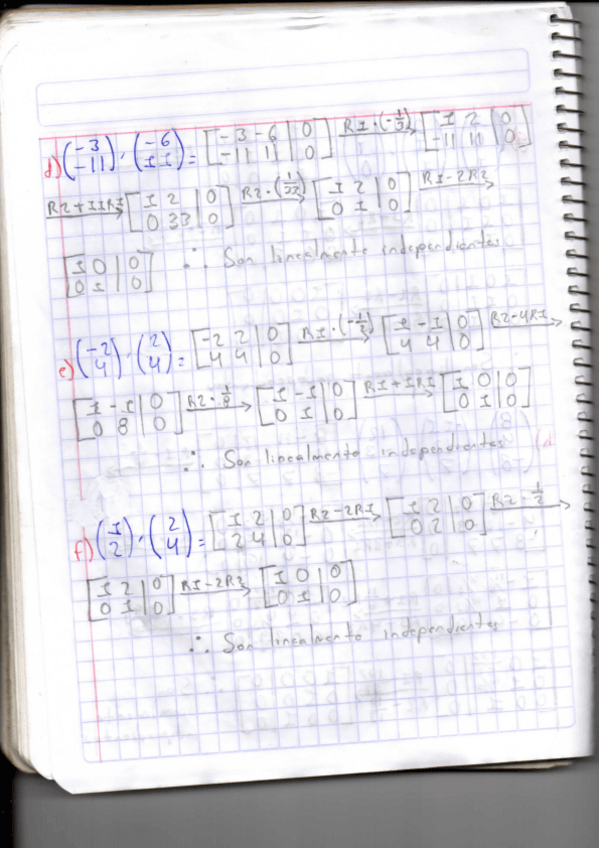 d) (-3 -11), (-6 11) = [-3 -6 | 0; -11 11 | 0] R1·(-1/3)→ [1 2 | 0; -11 11 | 0]
R2+11R1→ [1 2 | 0; 0 33 | 0] R2·(1/33)→ [1 2 | 0; 0 1 | 0] R1-2R2→
[1 0 | 0; 0 1 | 0] ∴ Son linealmente independientes
e) (-2 4), (2 4) = [-2 2 | 0; 4 4 | 0] R1·(-1/2)→ [1 -1 | 0; 4 4 | 0] R2-4R1→
[1 -1 | 0; 0 8 | 0] R2·1/8→ [1 -1 | 0; 0 1 | 0] R1+1R1→ [1 0 | 0; 0 1 | 0]
∴ Son linealmente independientes
f) (1 2), (2 4) = [1 2 | 0; 2 4 | 0] R2-2R1→ [1 2 | 0; 0 2 | 0] R2·1/2→
[1 2 | 0; 0 1 | 0] R1-2R2→ [1 0 | 0; 0 1 | 0]
∴ Son linealmente independientes